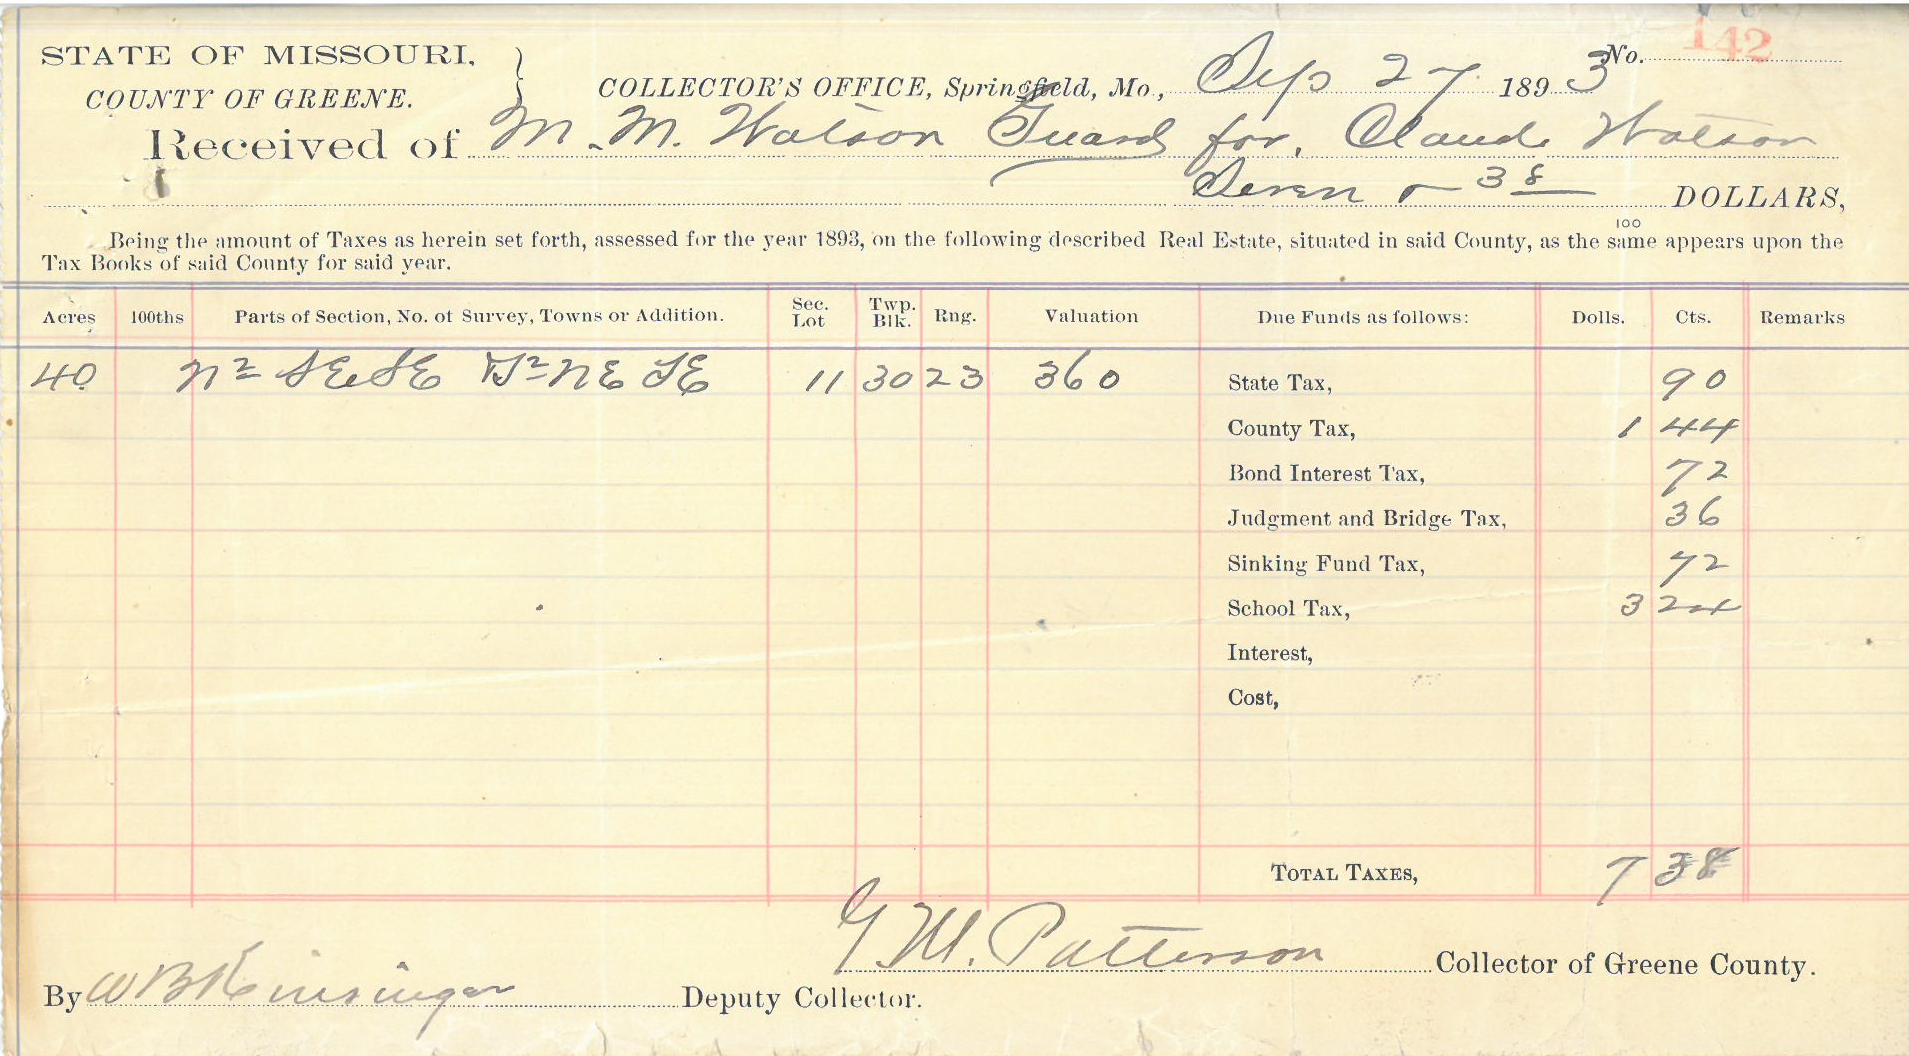 No. 142
STATE OF MISSOURI,
COUNTY OF GREENE.
COLLECTOR'S OFFICE, Springfield, Mo., Sep 27 1893
Received of M. M. Watson Guard for. Claude Watson
Seven & 38 DOLLARS,
100
Being the amount of Taxes as herein set forth, assessed for the year 1893, on the following described Real Estate, situated in said County, as the same appears upon the
Tax Books of said County for said year.
Acres 100ths Parts of Section, No. of Survey, Towns or Addition. Sec. Lot Twp. Blk. Rng. Valuation Due Funds as follows: Dolls. Cts. Remarks
40 N2 SE SE W2 NE SE 11 30 23 360 State Tax, 90
County Tax, 1 44
Bond Interest Tax, 72
Judgment and Bridge Tax, 36
Sinking Fund Tax, 72
School Tax, 3 24
Interest,
Cost,
TOTAL TAXES, 7 38
G. M. Patterson Collector of Greene County.
By W B Kinsinger Deputy Collector.